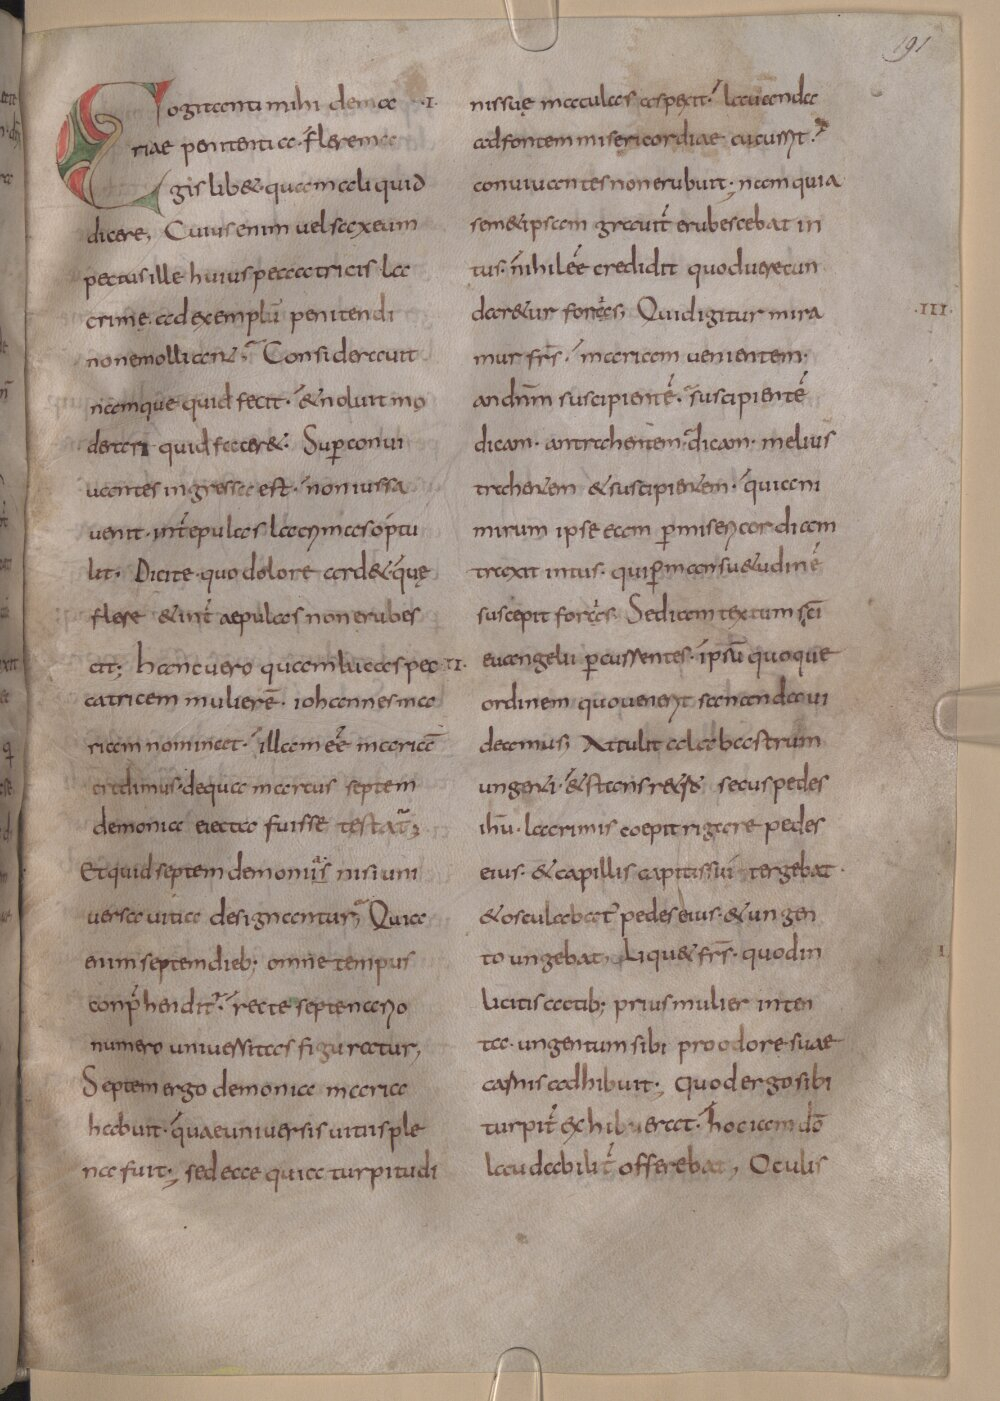 191
Cogitanti mihi de ma .I.
riae penitentia. flere ma
gis lib& quam aliquid
dicere, Cuius enim vel saxeum
pectus ille huius peccatricis la
crime. ad exemplū penitendi
non emolliant, Consideravit
namque quid fecit. & noluit mo
derari quid facer&. Sup convi
vantes ingressa est. non iussa
venit. int̄ epulas lacrymas optu
lit. Dicite quo dolore ard& que
flere & int̄ aepulas non erubes
cit; hanc vero quam lucas pec .II.
catricem mulierē. iohannes ma
riam nominat. illam eē mariā
credimus. de qua marcus septem
demonia eiecta fuisse testat̄;
Et quid septem demonia nisi uni
versa vitia designantur, Quia
enim septem dieb; omne tempus
conp̄hendit̄. recte septenario
numero universitas figuratur,
Septem ergo demonia maria
habuit. quae universis vitiis ple
na fuit; sed ecce quia turpitudi
nis suę maculas aspexit. lavanda
ad fontem misericordiae cucurrit.
convivantes non erubuit. nam quia
sem&ipsam gravit̄ erubescebat in
tus. nihil eē credidit quod verecun
dar&ur foras, Quid igitur mira .III.
mur frs̄. mariam venientem.
an dnm̄ suscipientē. suscipientē
dicam. an trahentem. dicam melius
trahentem & suscipientem. quia ni
mirum ipse eam p misericordiam
traxit intus. qui p mansu&udinē
suscepit foras. Sed iam textum sc̄i
euangelii p currentes. ipsū quoque
ordinem quo venerit sananda vi
deamus, Attulit alabastrum
ungenti. & stans retro secus pedes
ihū. lacrimis coepit rigare pedes
eius. & capillis capitis sui tergebat.
& osculabat̄ pedes eius. & ungen
to ungebat, Liqu& frs̄. quod in I
licitis actib; prius mulier inten
ta. ungentum sibi pro odore suae
carnis adhibuit; Quod ergo sibi
turpit̄ exhibuerat. hoc iam dō
laudabilit̄ offerebat, Oculis